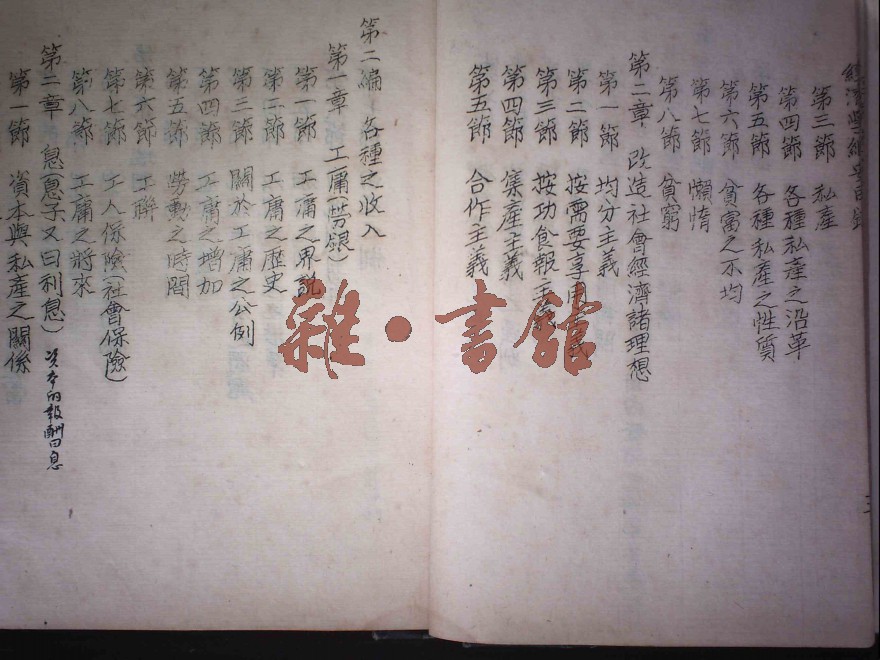 經濟學綱要目錄
第三節 私產
第四節 各種私產之沿革
第五節 各種私產之性質
第六節 貧富之不均
第七節 懶惰
第八節 貧窮
第二章 改造社會經濟諸理想
第一節 均分主義
第二節 按需要享用主義
第三節 按功食報主義
第四節 集產主義
第五節 合作主義
第二編 各種之收入
第一章 工庸(勞銀)
第一節 工庸之界說
第二節 工庸之歷史
第三節 關於工庸之公例
第四節 工庸之增加
第五節 勞動之時間
第六節 工聯
第七節 工人保險(社會保險)
第八節 工庸之將來
第二章 息(息子又曰利息) 資本的報酬曰息
第一節 資本與私產之關係
雜·書館